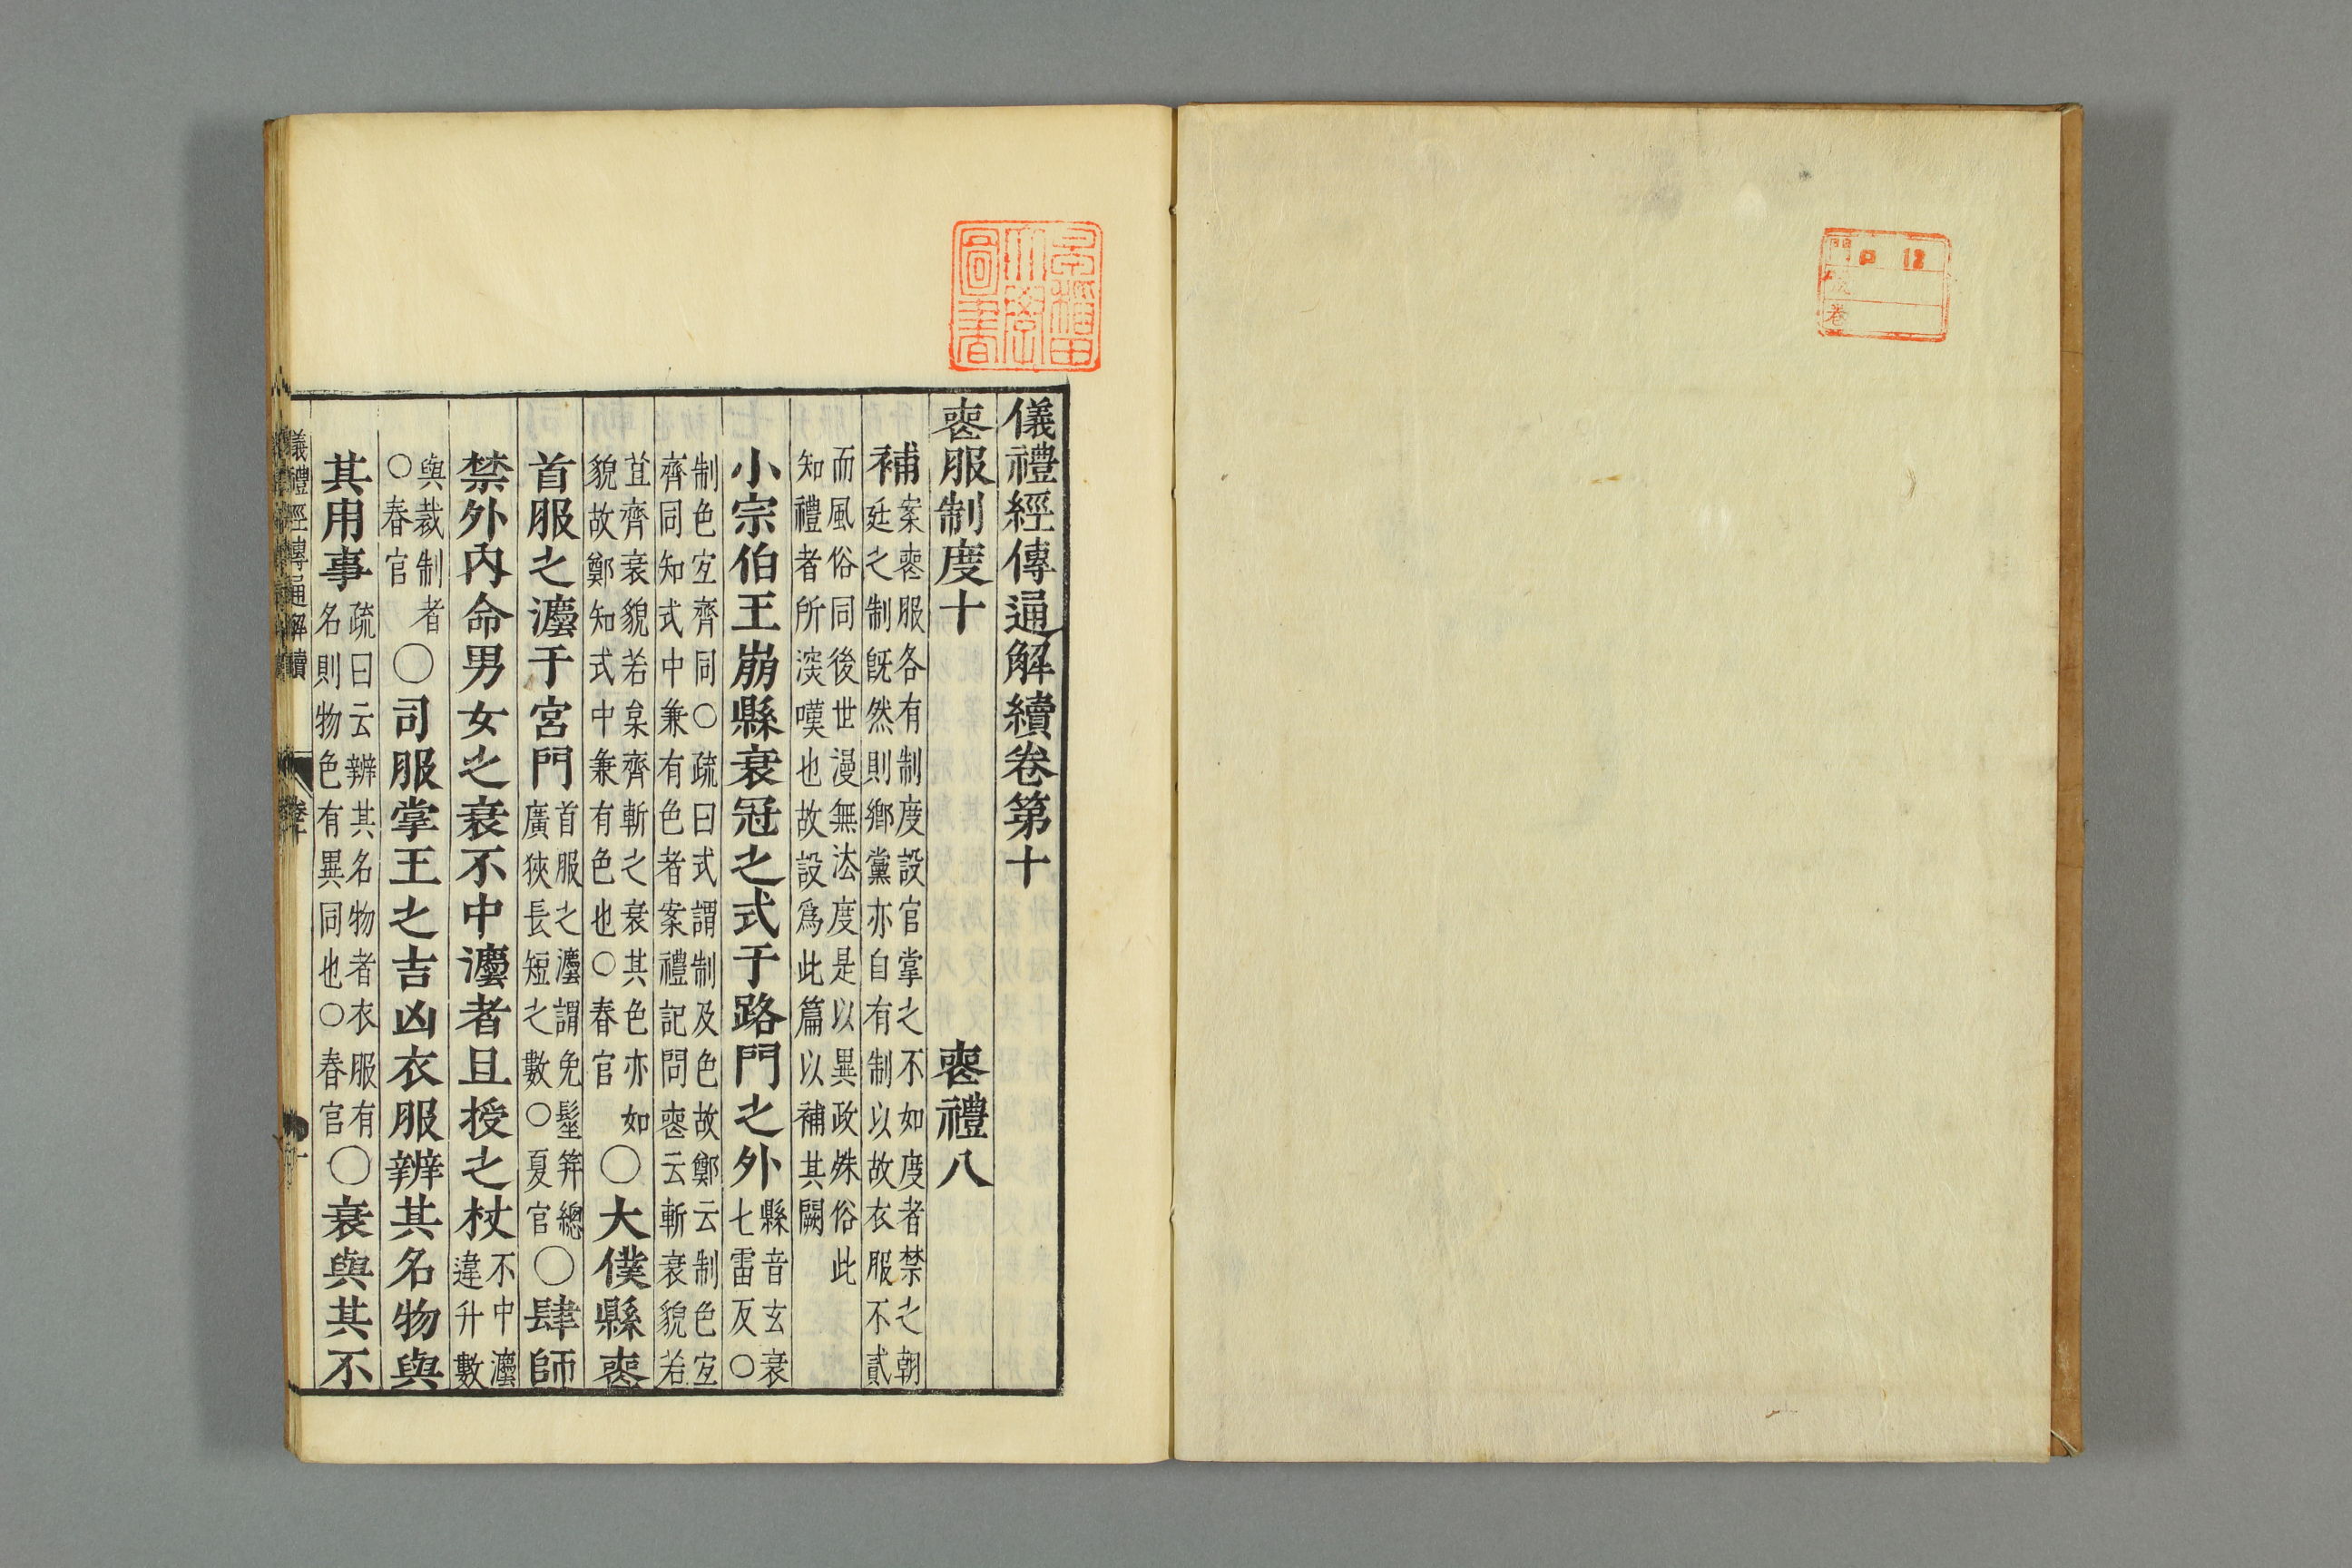 門 ロ 12
號
卷
早稲田
大學
圖書
儀禮經傳通解續卷第十
喪服制度十 喪禮八
補 案喪服各有制度設官掌之不如度者禁之朝
廷之制旣然則鄉黨亦自有制以故衣服不貳
而風俗同後世漫無法度是以異政殊俗此
知禮者所深嘆也故設爲此篇以補其闕
小宗伯王崩縣衰冠之式于路門之外 縣音玄衰
七雷反○
制色宜齊同○疏曰式謂制及色故鄭云制色宜
齊同知式中兼有色者案禮記問喪云斬衰貌若
苴齊衰貌若枲齊斬之衰其色亦如
貌故鄭知式中兼有色也○春官 ○大僕縣喪
首服之灋于宮門 首服之灋謂免髽笄總
廣狹長短之數○夏官 ○肆師
禁外內命男女之衰不中灋者且授之杖 不中灋
違升數
與裁制者
○春官 ○司服掌王之吉凶衣服辨其名物與
其用事 疏曰云辨其名物者衣服有
名則物色有異同也○春官 ○衰與其不
儀禮經傳通解續 卷十 一